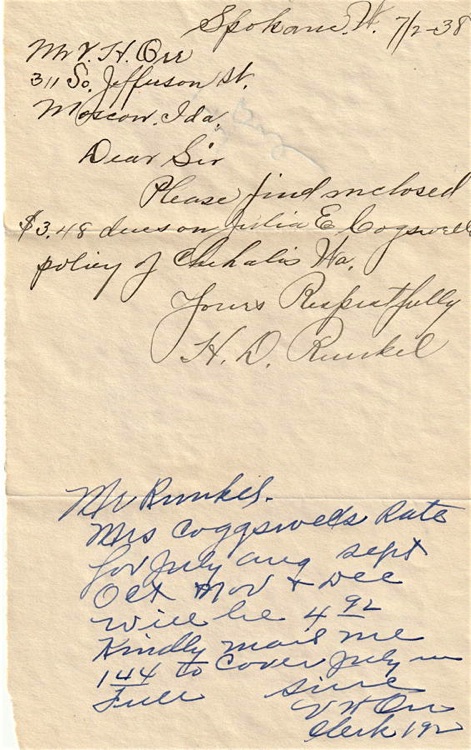 Spokane. W. 7/2-38
Mr V. H. Orr
311 So. Jefferson St.
Moscow. Ida.
Dear Sir
Please find enclosed
$3.48 dues on Julia E Cogswell
policy of Chehalis Wa.
Yours Respectfully
H. D. Runkel
Mr Runkel.
Mrs Coggswells Rate
for July aug sept
Oct Nov & Dec
will be 4 92
Kindly mail me
1 44 to cover July in
Full since
V H Orr
Clerk 192